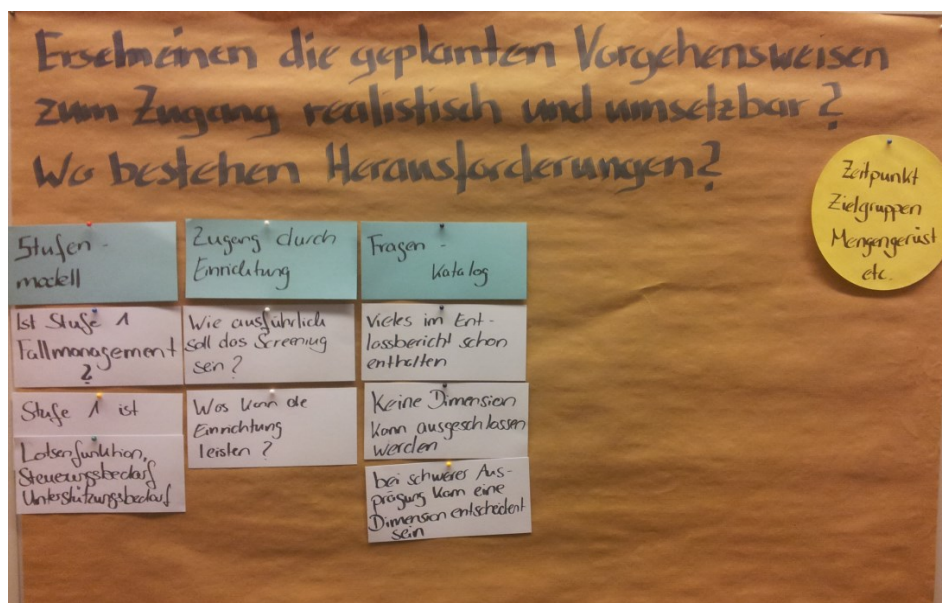 Erscheinen die geplanten Vorgehensweisen
zum Zugang realistisch und umsetzbar?
Wo bestehen Herausforderungen?
Zeitpunkt
Zielgruppen
Mengengerüst
etc.
Stufen-
modell
Ist Stufe 1
Fallmanagement
?
Stufe 1 ist
Lotsenfunktion,
Steuerungsbedarf
Unterstützungsbedarf
Zugang durch
Einrichtung
Wie ausführlich
soll das Screening
sein?
Was kann die
Einrichtung
leisten?
Fragen-
Katalog
Vieles im Ent-
lassbericht schon
enthalten
Keine Dimension
kann ausgeschlossen
werden
bei schwerer Aus-
prägung kann eine
Dimension entscheident
sein